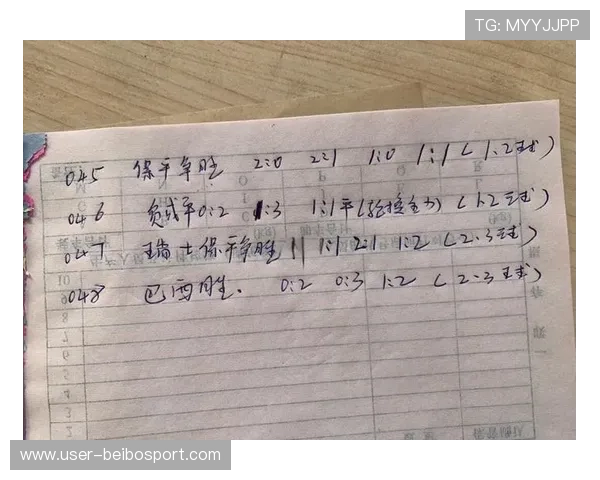 TG: MYYJJPP
045 保平争胜 2:0 2:1 1:0 1:1 ( 1.2球)
046 负或平 0:2 1:3 1:1平 ( 1-2球)
047 瑞士保平争胜 || 1:1 2:1 1:2 ( 2-3球)
048 巴西胜. 0:2 0:3 1:2 ( 2-3球)
10
9
8
7
6
5
4
3
2
www.user-beibosport.com